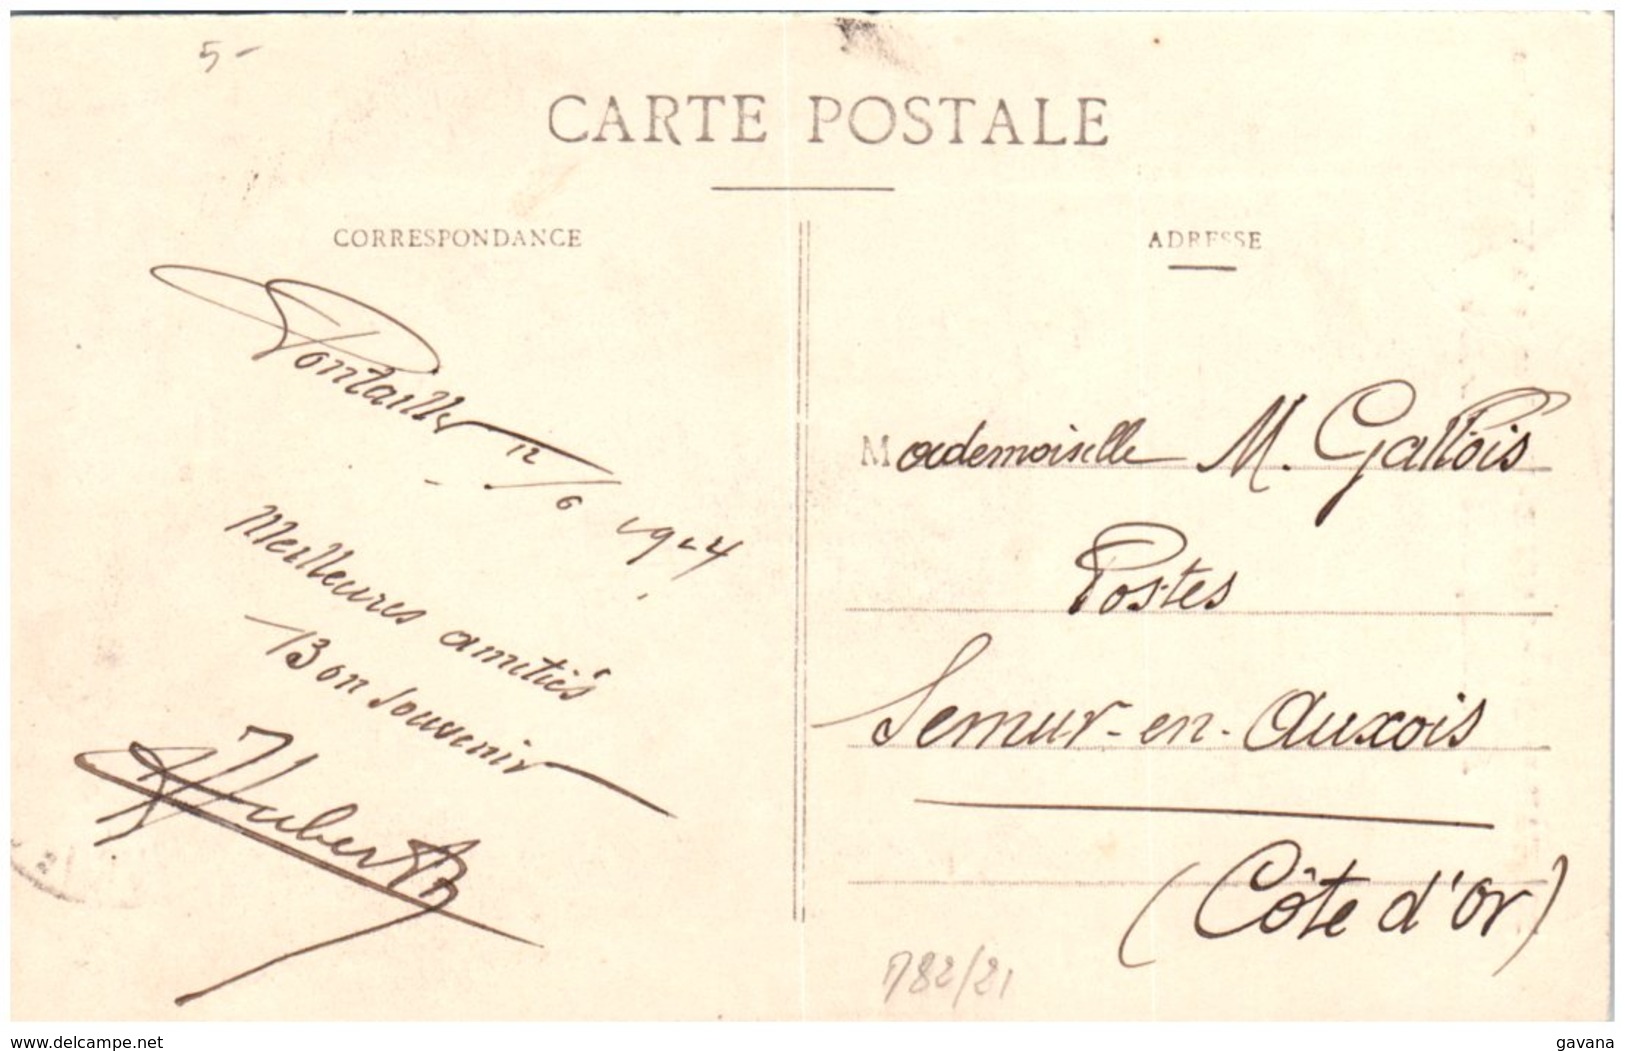 5-
CARTE POSTALE
CORRESPONDANCE
Pontailler 12/6 1924
Meilleures amitiés
Bon souvenir
Hubert
ADRESSE
Mademoiselle M. Gallois
Postes
Semur-en-Auxois
(Côte d'Or)
782/21
www.delcampe.net
gavana